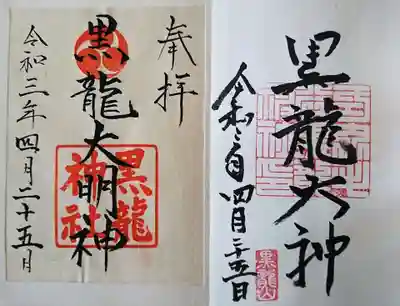 奉拝
黒龍大明神
黒龍
神社
令和三年四月二十五日
黒龍大神
令和三年四月二十五日
黒龍山